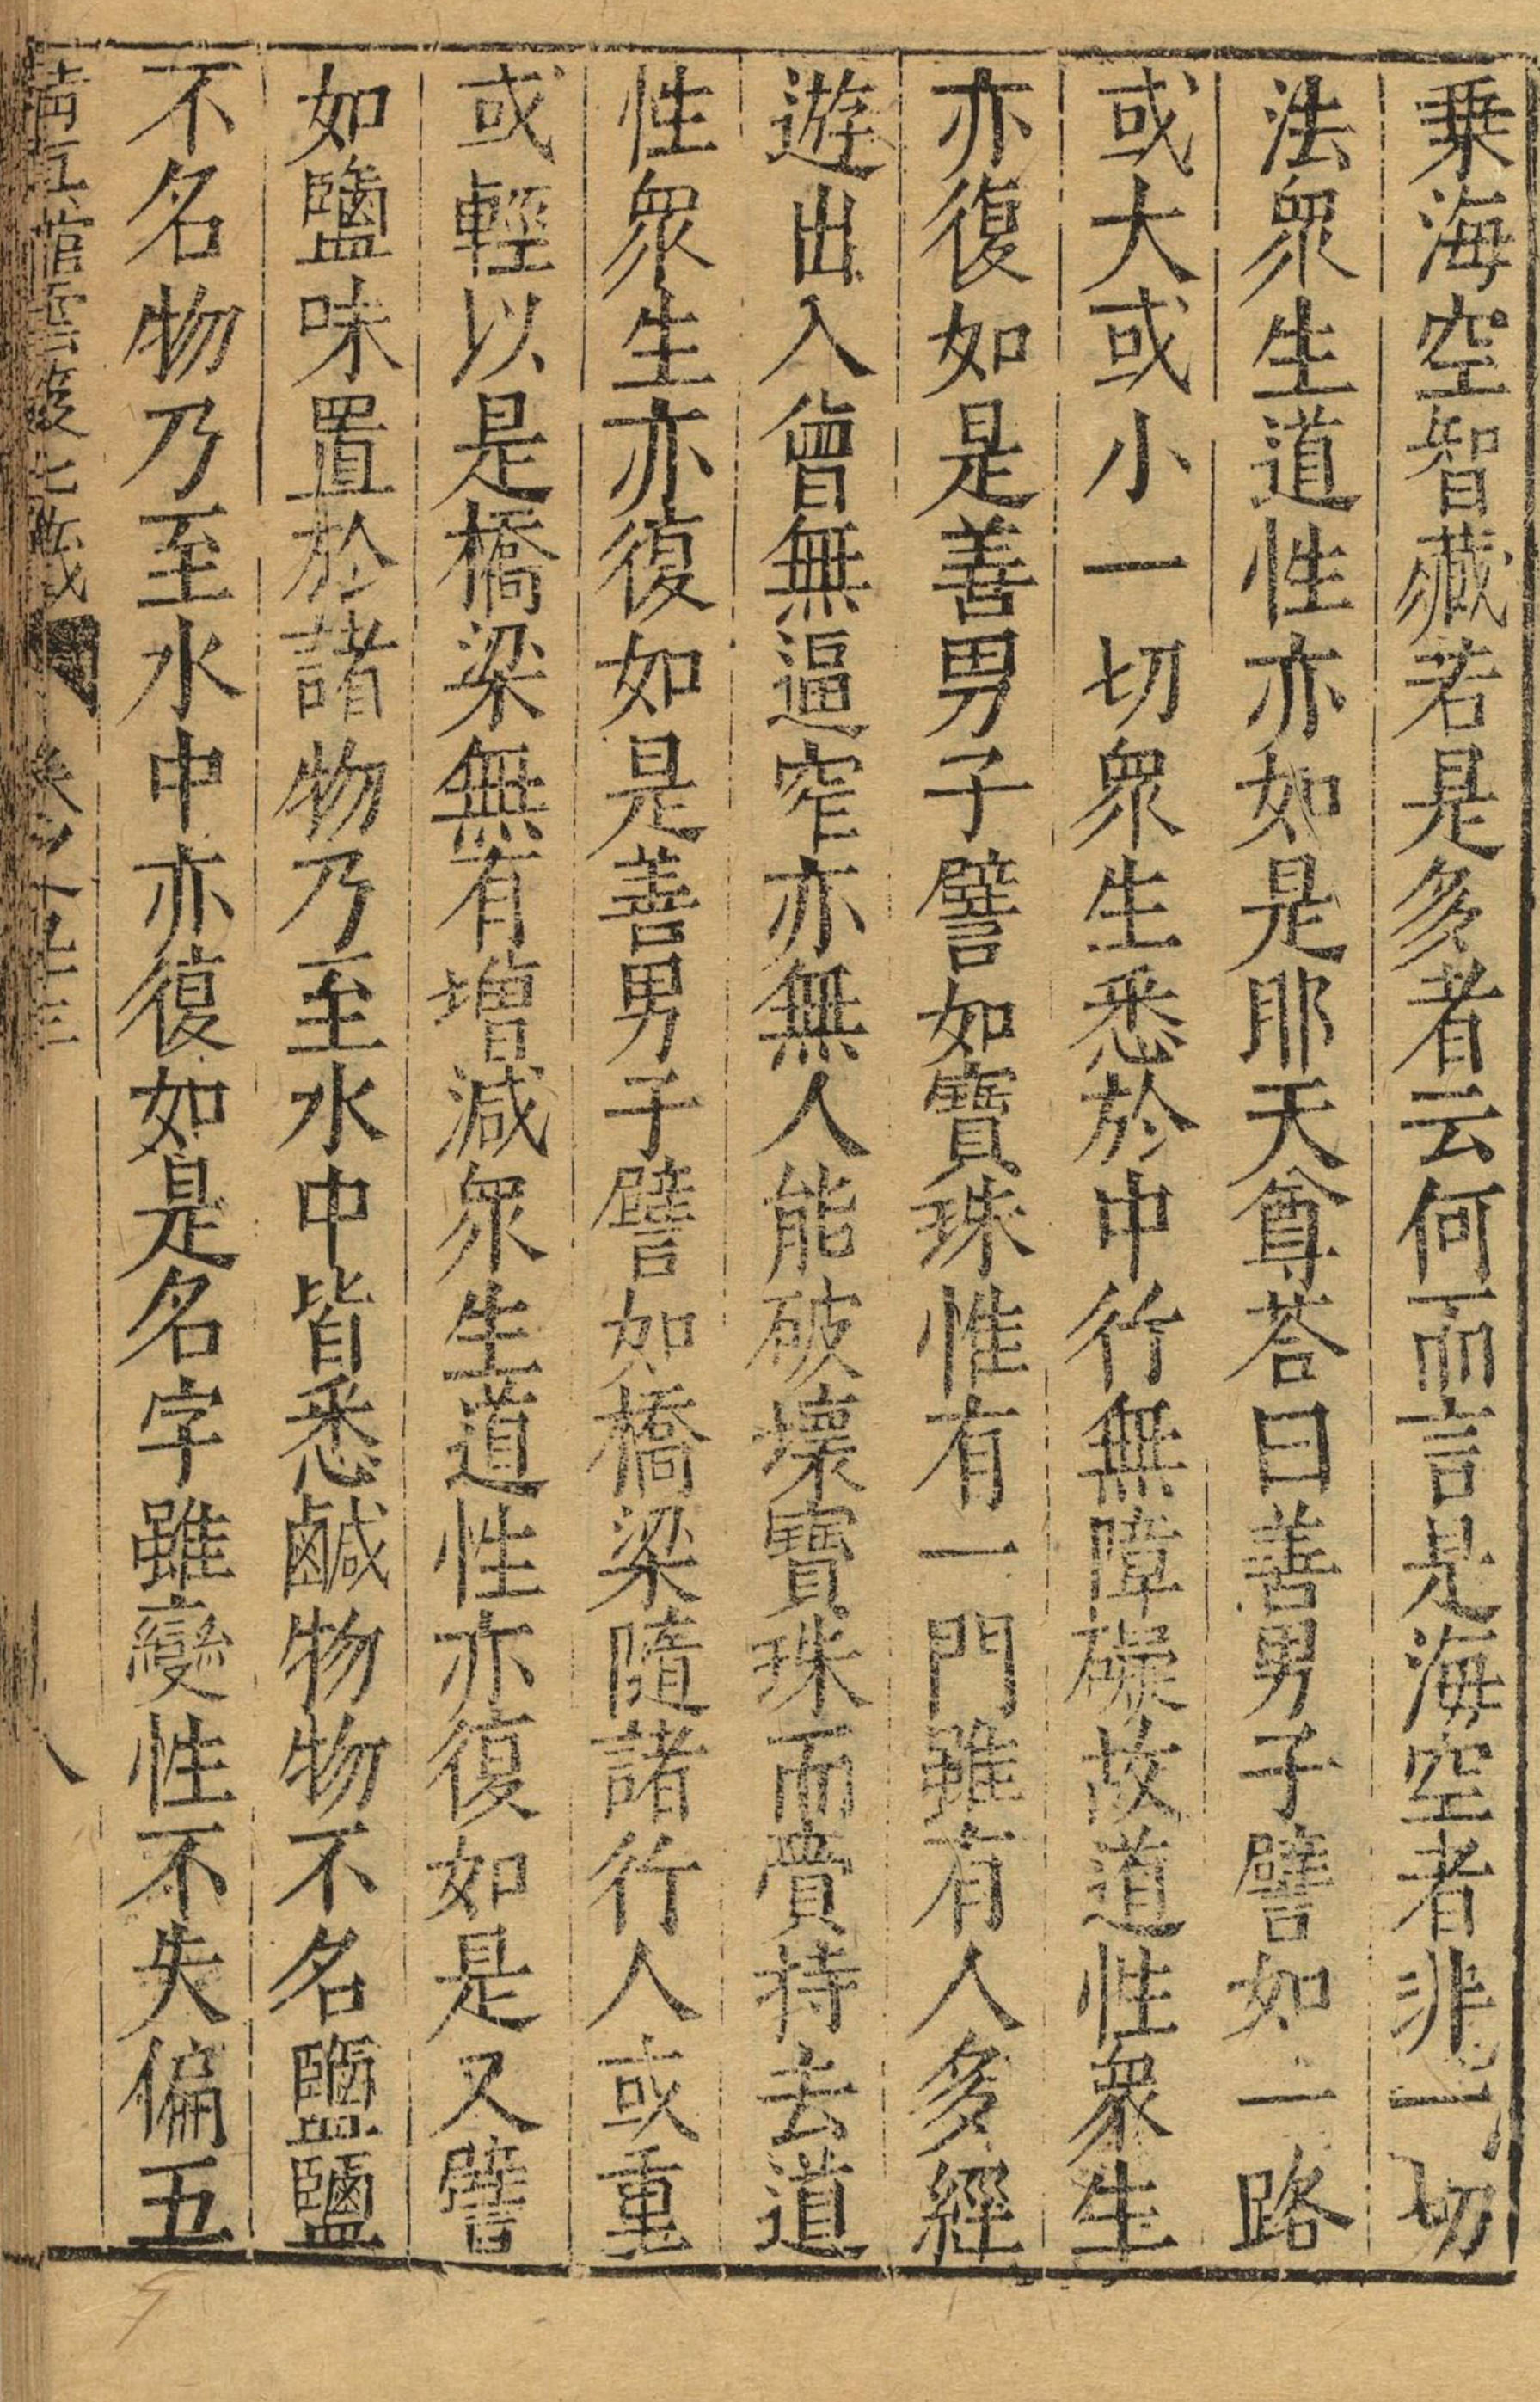 乗海空智藏若是多者云何而言是海空者非一切
法眾生道性亦如是耶天尊荅曰善男子譬如一路
或大或小一切眾生悉於中行無障礙故道性眾生
亦復如是善男子譬如寶珠惟有一門雖有人多經
遊出入曾無逼窄亦無人能破壞寶珠而賣持去道
性眾生亦復如是善男子譬如橋梁隨諸行人或重
或輕以是橋梁無有增減眾生道性亦復如是又譬
如鹽味置於諸物乃至水中皆悉鹹物物不名鹽鹽
不名物乃至水中亦復如是名字雖變性不失偏五
雲笈七籤
八